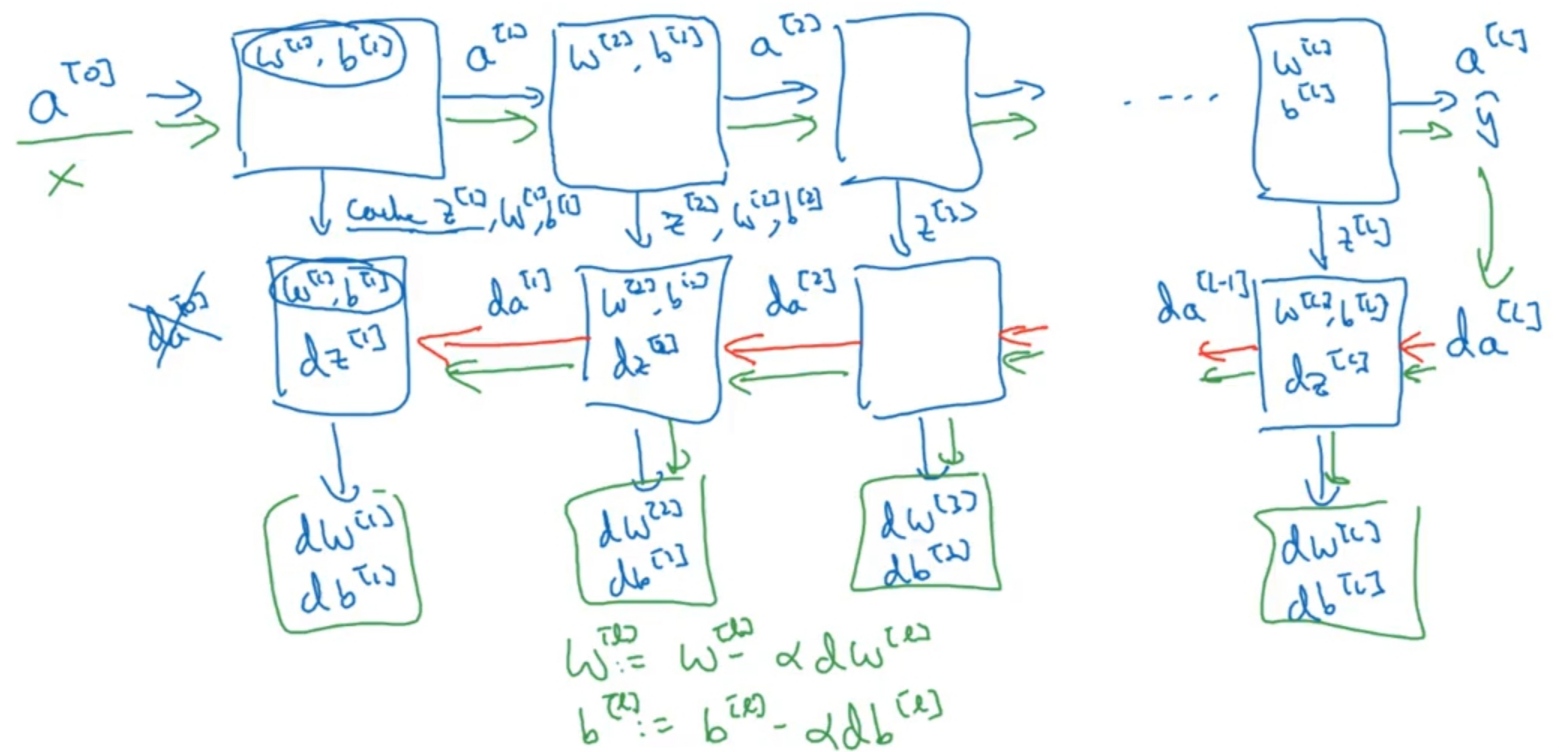 a^[0]
x
w^[1], b^[1]
a^[1]
w^[2], b^[2]
a^[2]
....
w^[L]
b^[L]
a^[L]
ŷ
cache z^[1], w^[1], b^[1]
z^[2], w^[2], b^[2]
z^[3]
z^[L]
da^[0]
w^[1], b^[1]
dz^[1]
da^[1]
w^[2], b^[2]
dz^[2]
da^[2]
da^[L-1]
w^[L], b^[L]
dz^[L]
da^[L]
dw^[1]
db^[1]
dw^[2]
db^[2]
dw^[3]
db^[3]
dw^[L]
db^[L]
W^[l] := W^[l] - αdw^[l]
b^[l] := b^[l] - αdb^[l]